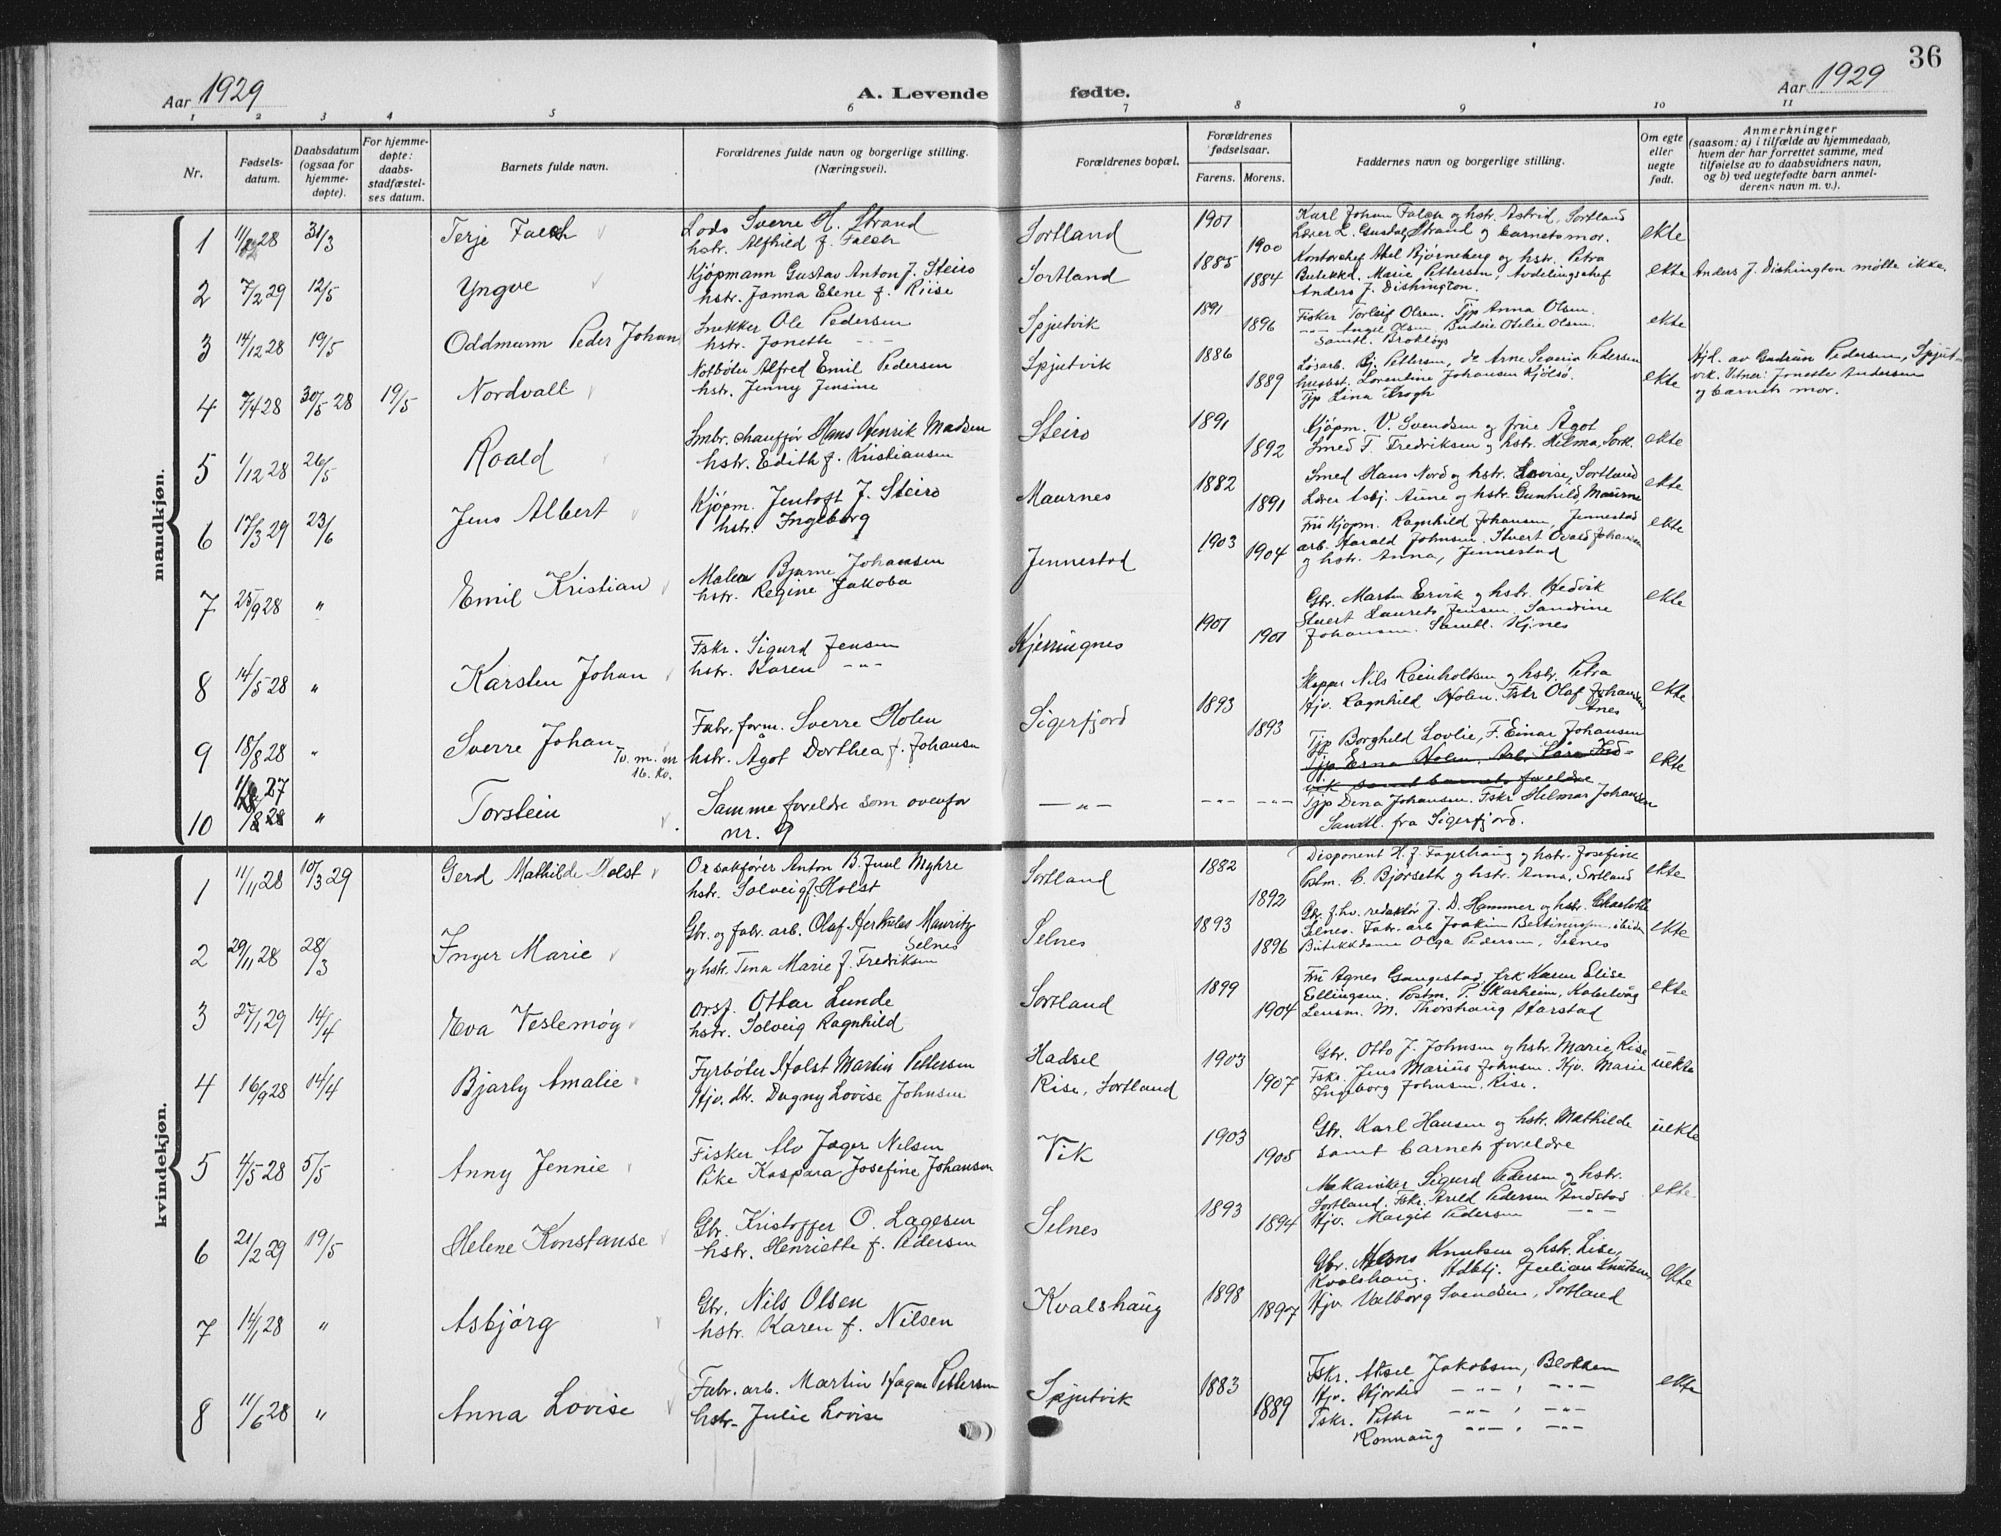 36
Aar 1929
A. Levende fødte.
Aar 1929
1 2 3 4 5 6 7 8 9 10 11
Nr.
Fødsels-
datum.
Daabsdatum
(ogsaa for
hjemme-
døpte).
For hjemme-
døpte:
daabs-
stadfæstel-
ses datum.
Barnets fulde navn.
Forældrenes fulde navn og borgerlige stilling.
(Næringsvei).
Forældrenes bopæl.
Forældrenes
fødselsaar.
Farens. Morens.
Faddernes navn og borgerlige stilling.
Om egte
eller
uegte
født.
Anmerkninger
(saasom: a) i tilfælde av hjemmedaab,
hvem der har forrettet samme, med
tilføielse av to daabsvidners navn,
og b) ved uegtefødte barn anmel-
derens navn m. v.).
mandkjøn.
1 28 31/3 Terje Falch
Lods Sverre H. Strand
hstr. Alfhild f. Falch
Sortland 1901 1900
Karl Johan Falch og hstr. Astrid, Sortland
Lærer L. Gusdal, Strand og barnets mor.
ekte
2 7/2 29 12/5 Yngve
Kjøpmann Gustav Anton J. Steiro
hstr. Janna Elene f. Riise
Sortland 1885 1884
Kontorchef Abel Bjørneberg og hstr. Petra
Butikkd. Marie Pettersen, Avdelingschef
Anders J. Dishington.
ekte
Anders J. Dishington møtte ikke.
3 14/12 28 19/5 Oddmann Peder Johan
Snekker Ole Pedersen
hstr. Jonette -"-
Spjutvik 1891 1896
Fisker Torleif Olsen. Tjp Anna Olsen.
-"- Olsen. Budeie Otelie Olsen.
samtl. Brotløys
ekte
4 7/4 28 30/5 28 19/5 Nordvall
Notbøter Alfred Emil Pedersen
hstr. Jenny Jensine
Spjutvik 1886 1889
Løsarb. Bj. Pettersen, do Arne Severin Pedersen
husbst. Lorentine Johansen Kjølsø.
Tjp Lina Krogh
ekte
Hjd. av Gudrun Pedersen, Spjut-
vik. Vitner: Jonette Andersen
og barnets mor.
5 1/12 28 26/5 Roald
Smbr. chauffør Hans Henrik Madsen
hstr. Edith f. Kristiansen
Steiro 1891 1892
Kjøpm. V. Svendsen og frue Ågot
Smed F. Fredriksen og hstr. Hilma, Sortl.
ekte
6 17/3 29 23/6 Jens Albert
Kjøpm. Jentoft J. Steiro
hstr. Ingeborg
Maurnes 1882 1891
Smed Hans Nord og hstr. Lovise, Sortland
Lærer Asbj. Aune og hstr. Gunhild, Maurne
ekte
7 25/9 28 " Emil Kristian
Maler Bjarne Johansen
hstr. Regine Jakoba
Jennestad 1903 1904
Fru Kjøpm. Ragnhild Johansen, Jennestad
arb. Harald Johnsen. Stuert Ovald Johansen
og hstr. Anna, Jennestad
ekte
8 14/5 28 " Karsten Johan
Fskr. Sigurd Jensen
hstr. Karen -"-
Kjerringnes 1901 1901
Gbr. Martin Ervik og hstr. Hedvik
Stuert Laurets Jensen. Sandrine
Johansen. Samtl. Kjnes
ekte
9 18/8 28 " Sverre Johan
Tv. m. m
16. Kv.
Fabr. form. Sverre Holen
hstr. Ågot Dorthea f. Johansen
Sigerfjord 1893 1893
Skipper Nils Reinholtsen og hstr. Petra
Hjv. Ragnhild Holen. Fskr Olaf Johansen
Ånes
Tjp Borghild Lovlie, F. Einar Johansen
ekte
10 " Torstein
Samme foreldre som ovenfor
nr. 9
-"- -"- -"-
Tjp Erna Holen, Arb.
samt barnets foreldre
Tjp Dina Johansen. Fskr Hilmar Johansen
Samtl. fra Sigerfjord.
ekte
kvindekjøn.
1 11/11 28 10/3 29 Gerd Mathilde Holst
Orsakfører Anton B. Juul Myhre
hstr. Solveig f. Holst
Sortland 1882 1892
Disponent H. J. Fagerhaug og hstr. Josefine
Postm. C. Bjørseth og hstr. Anna, Sortland
ekte
2 29/11 28 28/3 Inger Marie
Gbr. og fabr. arb. Olaf Herkules Mauritz
Selnes
og hstr. Tina Marie f. Fredriksen
Selnes 1893 1896
Gbr. f.hv. redaktør J. D. Hammer og hstr. Charlotte
Selnes. Fabr. arb Joakim Bertinusen, ibidem
Butikkdame Olga Pedersen, Selnes
ekte
3 27/1 29 14/4 Eva Veslemøy
Orsf. Ottar Lunde
hstr. Solveig Ragnhild
Sortland 1899 1904
Fru Agnes Gangestad, frk Karen Elise
Ellingsen. Postm. T. Skarheim, Kabelvåg
Lensm. M. Thorshaug Harstad
ekte
4 16/9 28 14/4 Bjarly Amalie
Fyrbøter Holst Martin Pettersen
Hjv. dtr. Dagny Lovise Johnsen
Hadsel
Rise, Sortland
1903 1907
Gbr. Otto J. Johnsen og hstr. Marie Rise
Fskr. Jens Marius Johnsen. Hjv. Marie
Ingeborg Johnsen. Rise.
uekte
5 4/5 28 5/5 Anny Jennie
Fisker Alv Jager Nilsen
Pike Kaspara Josefine Johansen
Vik 1903 1905
Gbr. Karl Hansen og hstr. Mathilde
samt barnets foreldre
uekte
6 21/2 29 19/5 Helene Konstanse
Gbr. Kristoffer O. Lagesen
hstr. Henriette f. Pedersen
Selnes 1893 1894
Mekaniker Sigurd Pedersen og hstr.
Sortland. Fskr. Arild Pedersen Andstad
Hjv. Margit Pedersen -"-
ekte
7 14/1 28 " Asbjørg
Gbr. Nils Olsen
hstr. Karen f. Nilsen
Kvalshaug 1898 1897
Gbr. Hans Knutsen og hstr. Lise,
Kvalshaug. Hdbtj. Julian Knutsen,
Hjv Valborg Svendsen, Sortland
ekte
8 11/6 28 " Anna Lovise
Fabr. arb. Martin Hagen Pettersen
hstr. Julie Lovise
Spjutvik 1883 1889
Fskr. Aksel Jakobsen, Blokken
Hjv. Hjørdis -"- , -"-
Fskr. Petter -"- , -"-
Rannaug -"- , -"-
ekte